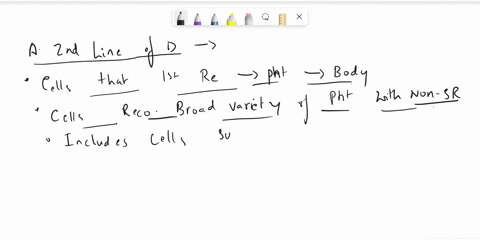 A 2nd Line of D →
• Cells that 1st Re → pht → Body
• Cells Reco. Broad variety of Pht with Non-SR
• Includes Cells su